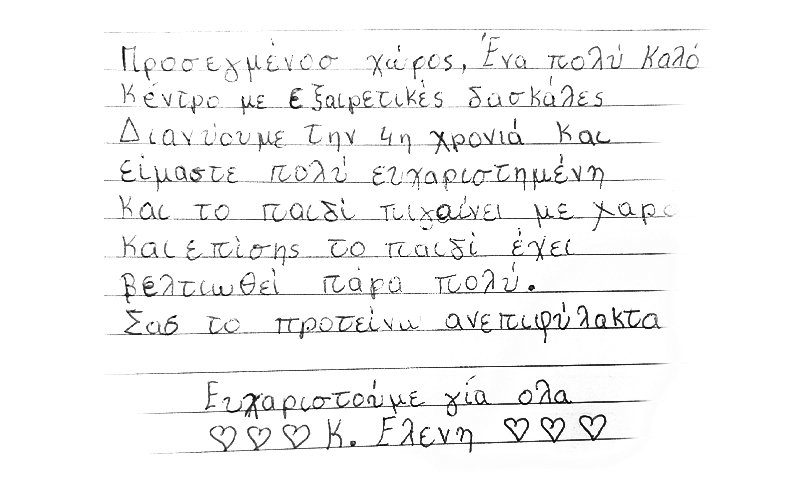 Προσεγμένοσ χώρος, Ένα πολύ καλό
Κέντρο με εξαιρετικές δασκάλες
Διανύουμε την 4η χρονιά και
είμαστε πολύ ευχαριστημένη
Και το παιδί πιγαίνει με χαρα
Και επίσης το παιδί έχει
βελτιωθεί πάρα πολύ.
Σασ το προτείνω ανεπιφύλακτα
Ευχαριστούμε γία ολα
♡♡♡ Κ. Ελενη ♡♡♡